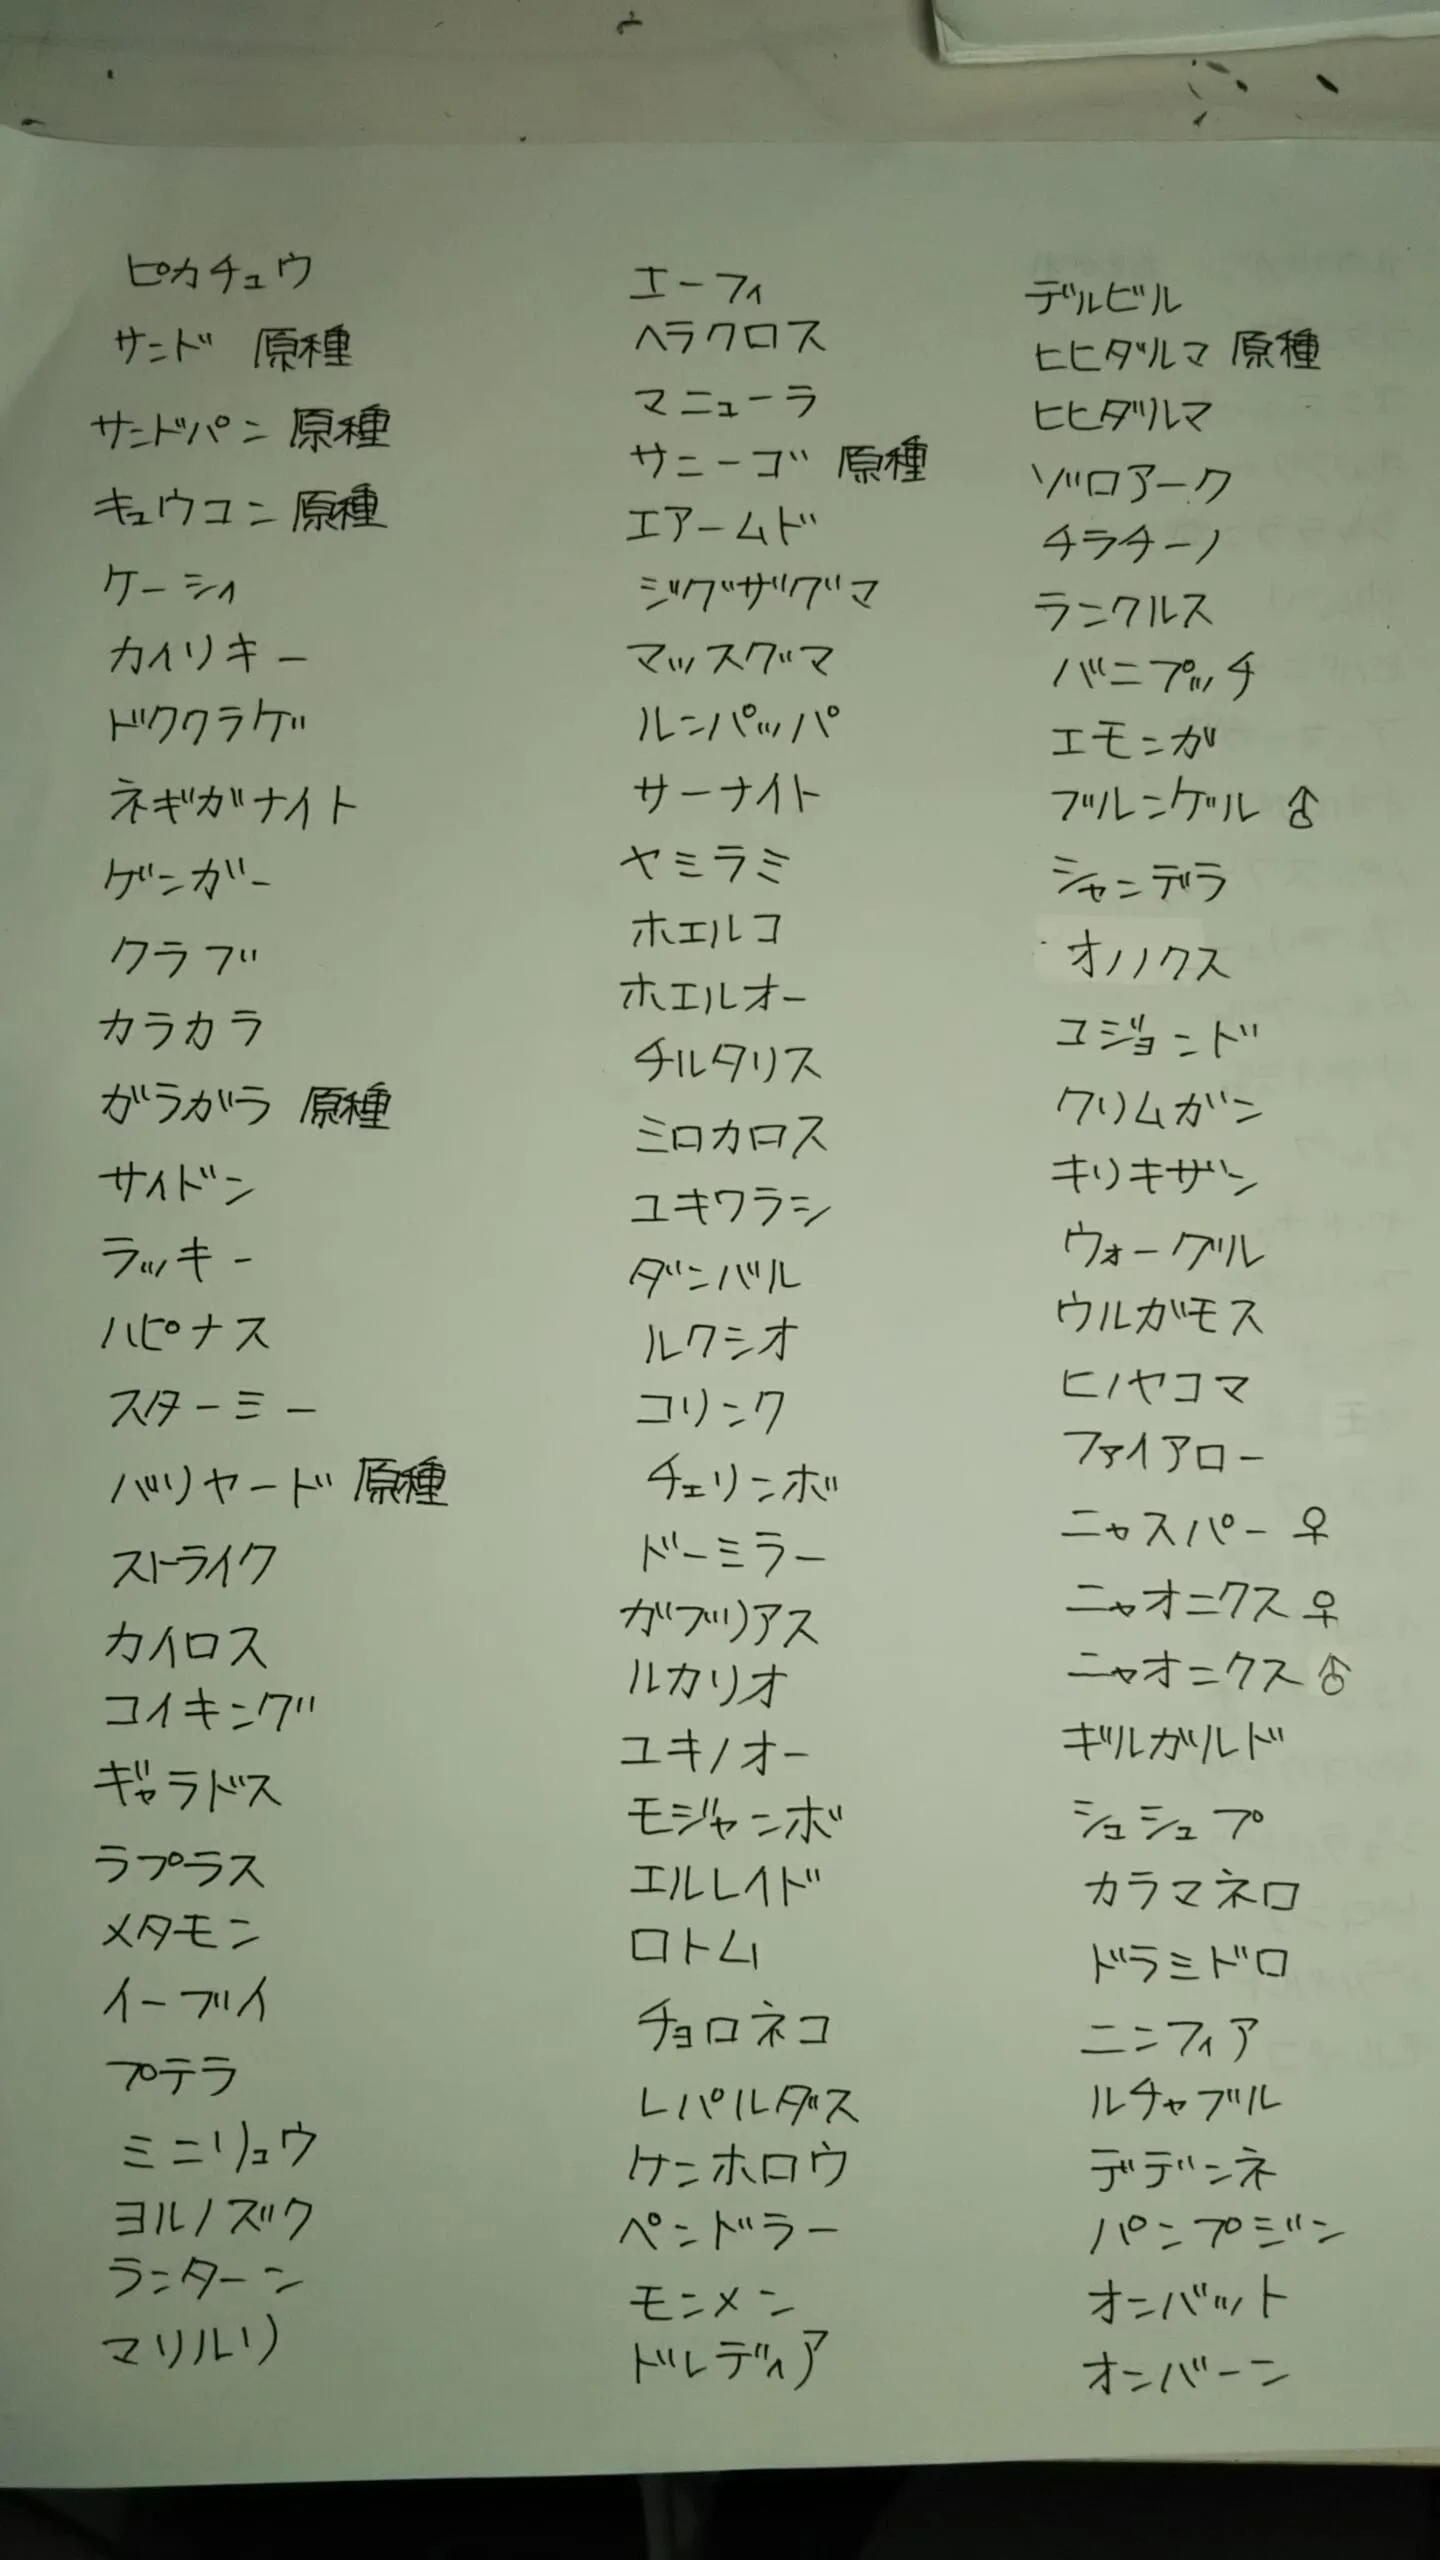 ピカチュウ
サンド 原種
サンドパン 原種
キュウコン 原種
ケーシィ
カイリキー
ドククラゲ
ネギガナイト
ゲンガー
クラブ
カラカラ
ガラガラ 原種
サイドン
ラッキー
ハピナス
スターミー
バリヤード 原種
ストライク
カイロス
コイキング
ギャラドス
ラプラス
メタモン
イーブイ
プテラ
ミニリュウ
ヨルノズク
ランターン
マリルリ
エーフィ
ヘラクロス
マニューラ
サニーゴ 原種
エアームド
ジグザグマ
マッスグマ
ルンパッパ
サーナイト
ヤミラミ
ホエルコ
ホエルオー
チルタリス
ミロカロス
ユキワラシ
ダンバル
ルクシオ
コリンク
チェリンボ
ドーミラー
ガブリアス
ルカリオ
ユキノオー
モジャンボ
エルレイド
ロトム
チョロネコ
レパルダス
ケンホロウ
ペンドラー
モンメン
ドレディア
デルビル
ヒヒダルマ 原種
ヒヒダルマ
ゾロアーク
チラチーノ
ランクルス
バニプッチ
エモンガ
ブルンゲル ♂
シャンデラ
オノノクス
コジョンド
クリムガン
キリキザン
ウォーグル
ウルガモス
ヒノヤコマ
ファイアロー
ニャスパー ♀
ニャオニクス ♀
ニャオニクス ♂
ギルガルド
シュシュプ
カラマネロ
ドラミドロ
ニンフィア
ルチャブル
デデンネ
パンプジン
オンバット
オンバーン